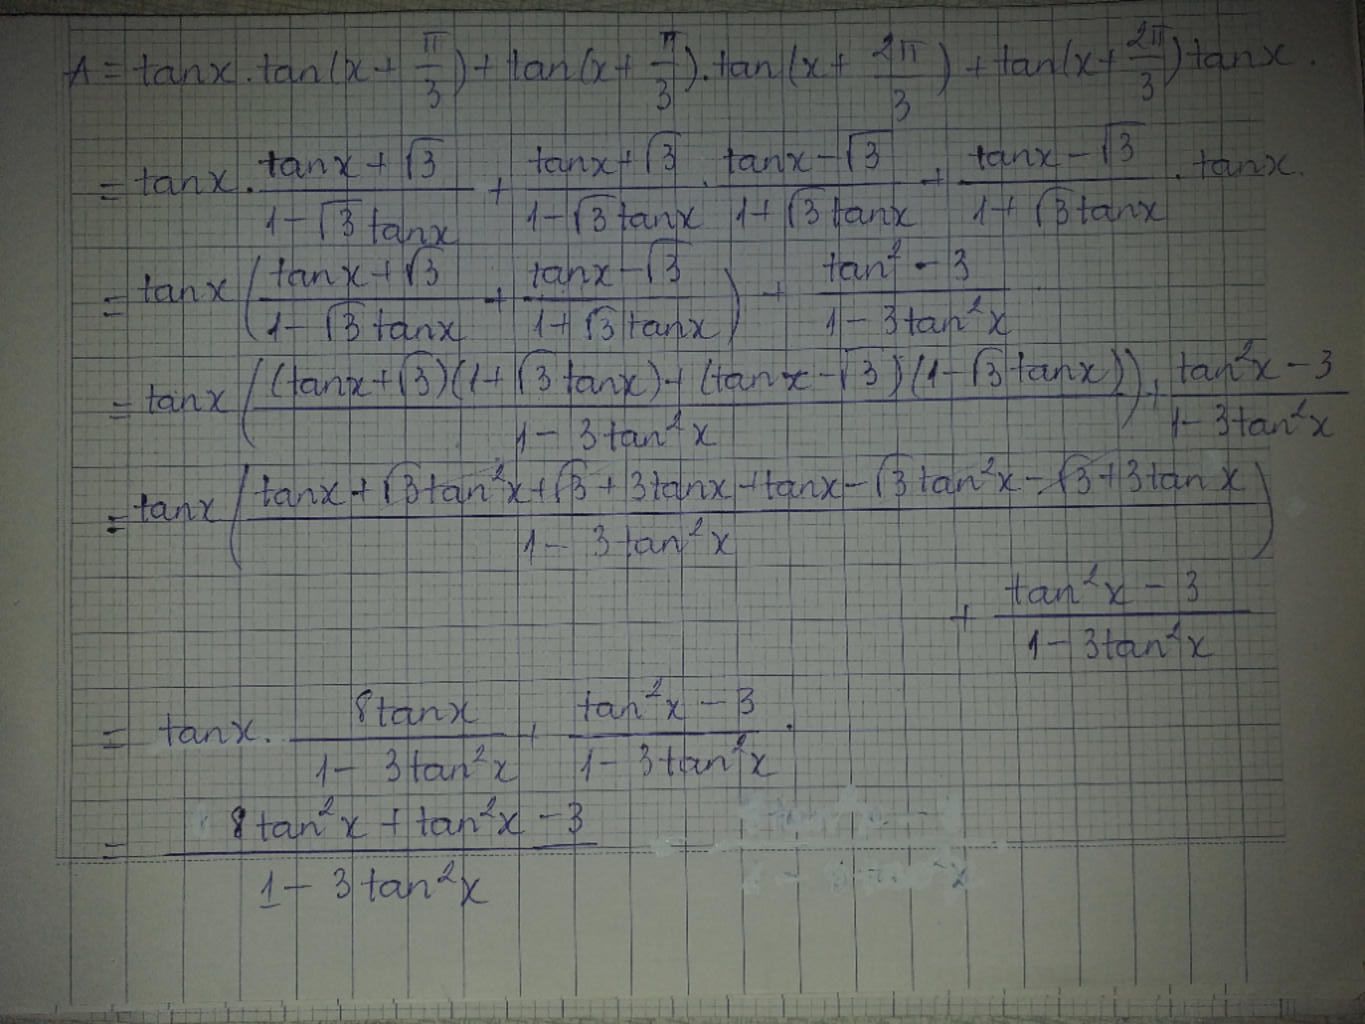 A = tanx.tan(x+π/3)+tan(x+π/3).tan(x+2π/3)+tan(x+2π/3)tanx.
= tanx.(tanx+√3)/(1-√3tanx) + (tanx+√3)/(1-√3tanx).(tanx-√3)/(1+√3tanx) + (tanx-√3)/(1+√3tanx).tanx.
= tanx((tanx+√3)/(1-√3tanx) + (tanx-√3)/(1+√3tanx)) + (tan²-3)/(1-3tan²x)
= tanx(((tanx+√3)(1+√3tanx)+(tanx-√3)(1-√3tanx))/(1-3tan²x)) + (tan²x-3)/(1-3tan²x)
= tanx((tanx+√3tan²x+√3+3tanx+tanx-√3tan²x-√3+3tanx)/(1-3tan²x))
+ (tan²x-3)/(1-3tan²x)
= tanx.8tanx/(1-3tan²x) + (tan²x-3)/(1-3tan²x).
= (8tan²x+tan²x-3)/(1-3tan²x)